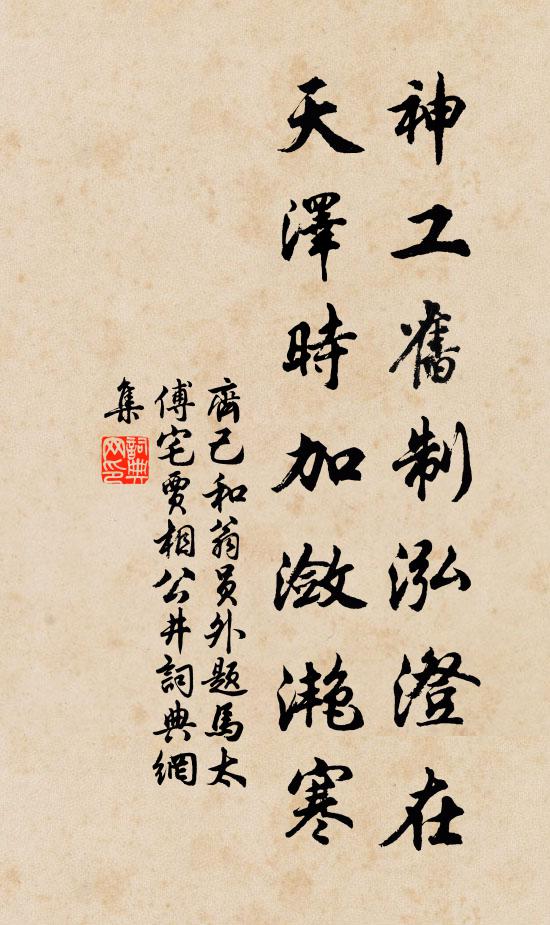 神工舊制泓澄在
天澤時加瀲灔寒
齊己和翁員外題馬太
傅宅賈相公井詞典網
集
詞典
网印